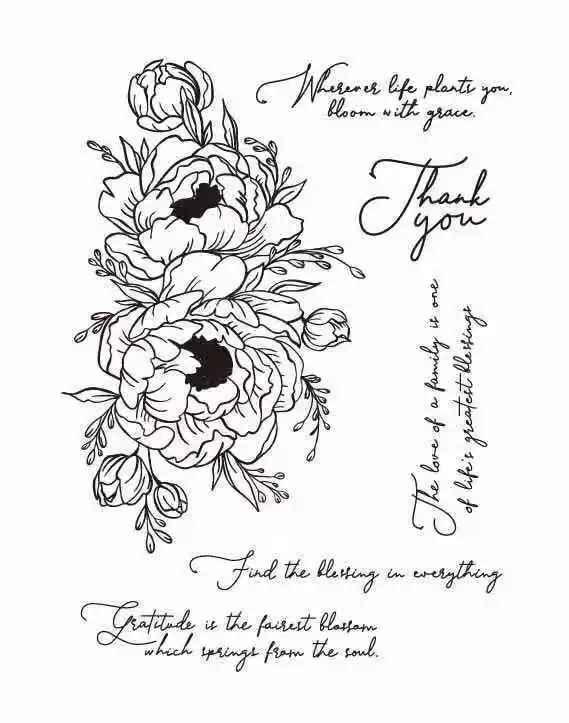 Wherever life plants you,
bloom with grace.
Thank
you
The love of a family is one
of life's greatest blessings
Find the blessing in everything
Gratitude is the fairest blossom
which springs from the soul.